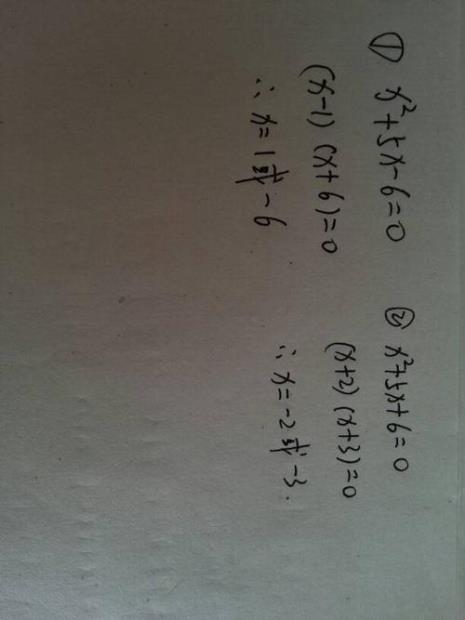 ① x²+5x-6=0
(x-1)(x+6)=0
∴ x=1或-6
② x²+5x+6=0
(x+2)(x+3)=0
∴ x=-2或-3.